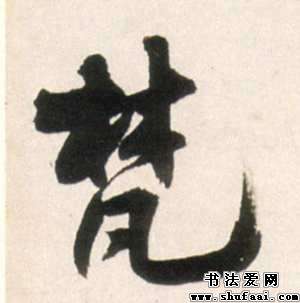 梵
书法爱网
www.shufaai.com